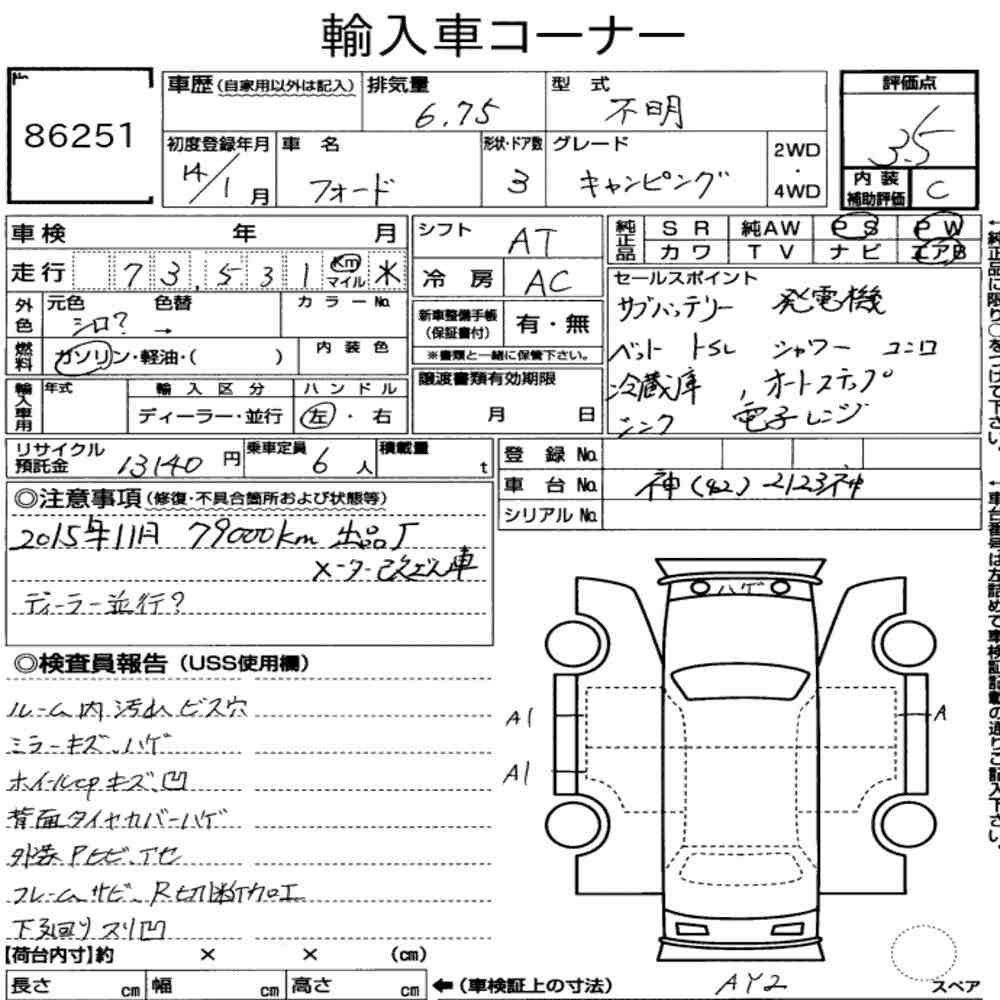 輸入車コーナー
No.
86251
車歴(自家用以外は記入)
排気量 6.75
型式 不明
評価点 3.5
初度登録年月 14/1月
車名 フォード
形状・ドア数 3
グレード キャンピング
2WD・4WD
内装補助評価 C
車検 年 月
走行 73,531 Km マイル 米
シフト AT
冷房 AC
純正品 SR 純AW PS PW
カワ TV ナビ エアB
外色 元色 シロ? 色替 → カラーNo.
燃料 ガソリン・軽油・( ) 内装色
新車整備手帳(保証書付) 有・無
※書類と一緒に保管下さい。
セールスポイント
サブバッテリー 発電機
ベット トSL シャワー ユニロ
冷蔵庫, オートステップ
シンク 電子レンジ
輸入車用 年式 輸入区分 ハンドル
ディーラー・並行 左・右
譲渡書類有効期限
月 日
リサイクル預託金 13140円
乗車定員 6人
積載量 t
登録No.
車台No. 神(42)2123神
シリアルNo.
◎注意事項(修復・不具合箇所および状態等)
2015年11月 79000km 出品丁
メーター改ざん車
ディーラー並行?
◎検査員報告(USS使用欄)
ルーム内汚れ ビス穴
ミラーキズ、ハゲ
ホイールcpキズ、凹
背面タイヤカバーハゲ
外装Pヒビ、アセ
フレームサビ R切断加工
下廻りスリ凹
【荷台内寸】約 × × (cm)
長さ cm 幅 cm 高さ cm
←(車検証上の寸法)
ハゲ
A1
A
A1
AY2
スペア
←純正品に限り○をつけて下さい。
←車台番号は左詰めで車検証記載の通りご記入下さい。